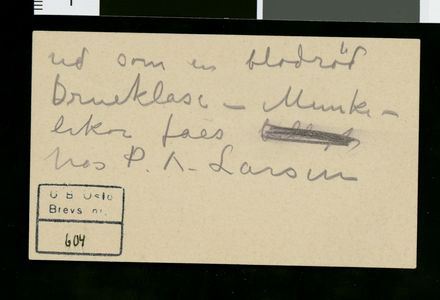 ud som en blodrød
Drueklase – Munke-
likør faes
hos P. A. Larsen
U B Oslo
Brevs. nr.
604